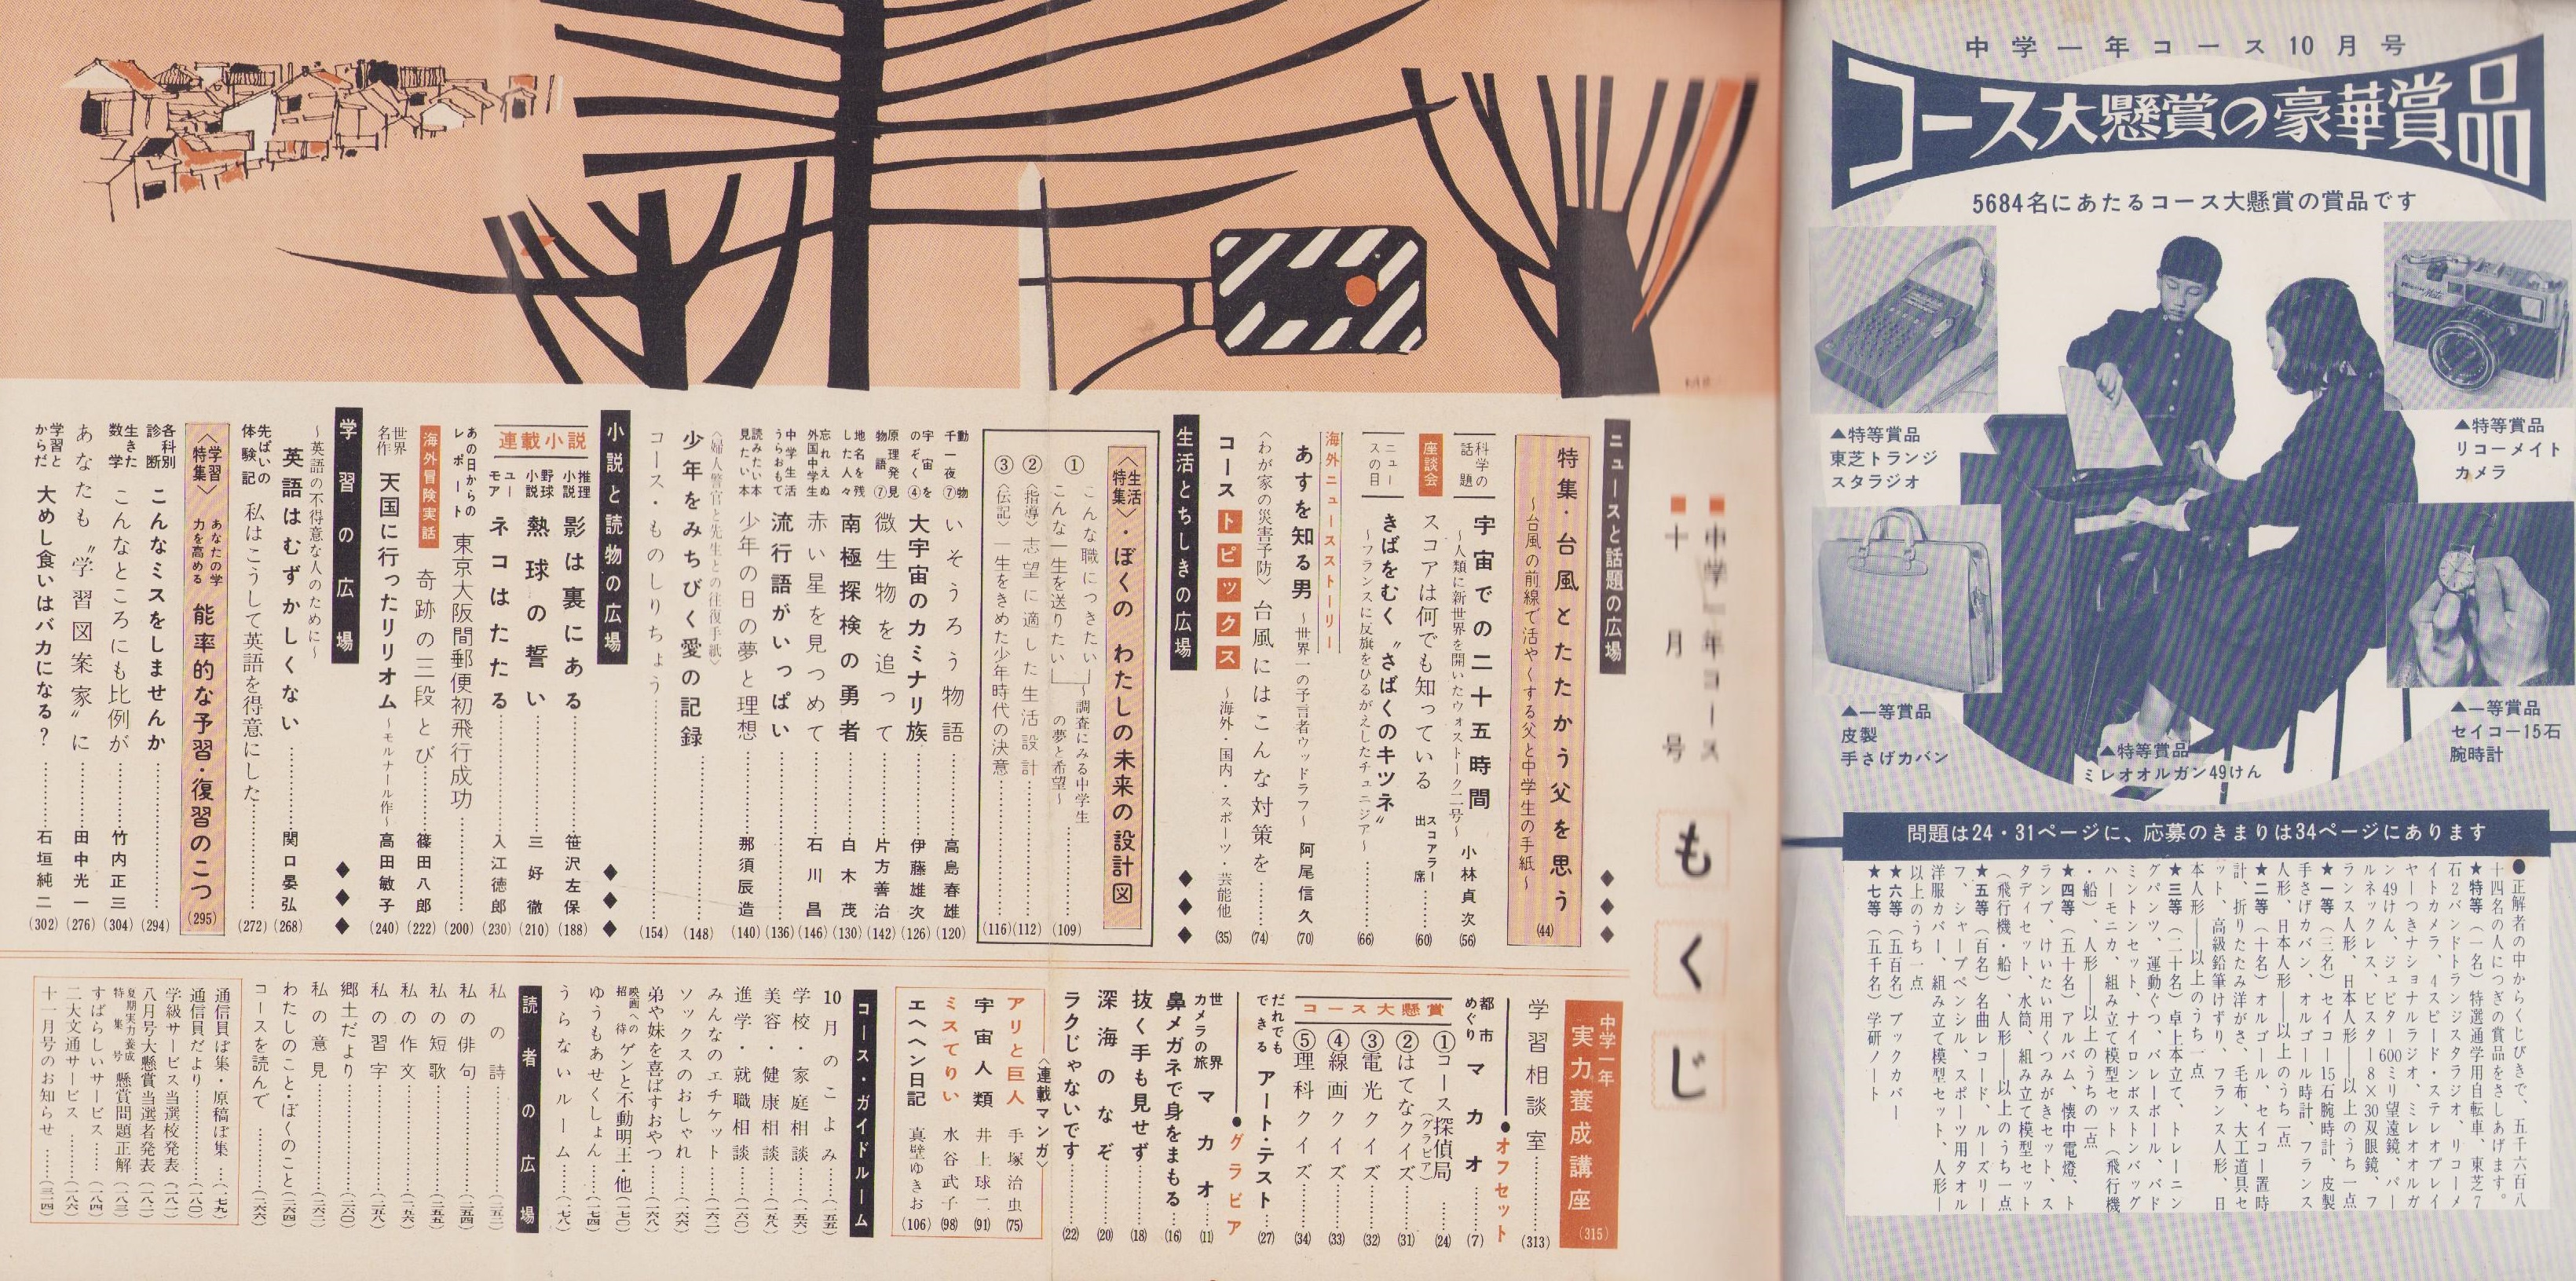 中学一年コース10月号
コース大懸賞の豪華賞品
5684名にあたるコース大懸賞の賞品です
▲特等賞品
リコーメイト
カメラ
▲特等賞品
東芝トランジ
スタラジオ
▲一等賞品
セイコー15石
腕時計
▲一等賞品
皮製
手さげカバン
▲特等賞品
ミレオオルガン49けん
問題は24・31ページに、応募のきまりは34ページにあります
●正解者の中からくじびきで、五千六百八
十四名の人につぎの賞品をさしあげます。
★特等（一名）特選通学用自転車、東芝7
石2バンドトランジスタラジオ、リコーメ
イトカメラ、4スピード・ステレオプレイ
ヤーつきナショナルラジオ、ミレオオルガ
ン49けん、ジュピター600ミリ望遠鏡、パー
ルネックレス、ビスター8×30双眼鏡、フ
ランス人形、日本人形――以上のうち一点
★一等（三名）セイコー15石腕時計、皮製
手さげカバン、オルゴール時計、フランス
人形、日本人形――以上のうち一点
★二等（十名）オルゴール、セイコー置時
計、折りたたみ洋がさ、毛布、大工道具セ
ット、高級鉛筆けずり、フランス人形、日
本人形――以上のうち一点
★三等（二十名）卓上本立て、トレーニン
グパンツ、運動ぐつ、バレーボール、バド
ミントンセット、ナイロンボストンバッグ
ハーモニカ、組み立て模型セット（飛行機
・船）、人形――以上のうちの一点
★四等（五十名）アルバム、懐中電燈、ト
ランプ、けいたい用くつみがきセット、ス
タディセット、水筒、組み立て模型セット
（飛行機・船）、人形――以上のうち一点
★五等（百名）名曲レコード、ルーズリー
フ、シャープペンシル、スポーツ用タオル
洋服カバー、組み立て模型セット、人形―
以上のうち一点
★六等（五百名）ブックカバー
★七等（五千名）学研ノート
中学一年コース
十月号
もくじ
ニュースと話題の広場
特集・台風とたたかう父を思う (44)
～台風の前線で活やくする父と中学生の手紙～
科学の話題 宇宙での二十五時間 小林貞次 (56)
～人類に新世界を開いたウォストーク二号～
座談会 スコアは何でも知っている 出席 スコアラー (60)
ニュースの目 きばをむく〝さばくのキツネ〟 (66)
～フランスに反旗をひるがえしたチュニジア～
海外ニュースストーリー
あすを知る男 ～世界一の予言者ウッドラフ～ 阿尾信久 (70)
〈わが家の災害予防〉台風にはこんな対策を (74)
コーストピックス ～海外・国内・スポーツ・芸能他 (35)
生活とちしきの広場
〈生活特集〉・ぼくの わたしの未来の設計図
① こんな職につきたい
こんな一生を送りたい
～調査にみる中学生の夢と希望～ (109)
② 〈指導〉志望に適した生活設計 (112)
③ 〈伝記〉一生をきめた少年時代の決意 (116)
動物千一夜⑦ いそうろう物語 高島春雄 (120)
宇宙をのぞく④ 大宇宙のカミナリ族 伊藤雄次 (126)
原理発見物語⑦ 微生物を追って 片方善治 (142)
地名を残した人々 南極探検の勇者 白木茂 (130)
忘れえぬ外国中学生 赤い星を見つめて 石川昌 (146)
中学生活うらおもて 流行語がいっぱい (136)
読みたい本見たい本 少年の日の夢と理想 那須辰造 (140)
〈婦人警官と先生との往復手紙〉
少年をみちびく愛の記録 (148)
コース・ものしりちょう (154)
小説と読物の広場
連載小説
推理小説 影は裏にある 笹沢左保 (188)
野球小説 熱球の誓い 三好徹 (210)
ユーモア ネコはたたる 入江徳郎 (230)
あの日からのレポート 東京大阪間郵便初飛行成功 (200)
海外冒険実話 奇跡の三段とび 篠田八郎 (222)
世界名作 天国に行ったリリオム ～モルナール作～ 高田敏子 (240)
学習の広場
～英語の不得意な人のために～
英語はむずかしくない 関口晏弘 (268)
先ぱいの体験記 私はこうして英語を得意にした (272)
〈学習特集〉 あなたの学力を高める 能率的な予習・復習のこつ (295)
各科別診断 こんなミスをしませんか (294)
生きた数学 こんなところにも比例が 竹内正三 (304)
あなたも〝学習図案家〟に 田中光一 (276)
学習とからだ 大めし食いはバカになる？ 石垣純二 (302)
中学一年 実力養成講座 (315)
学習相談室 (313)
●オフセット
都市めぐり マカオ (7)
コース大懸賞
①コース探偵局（グラビア） (24)
②はてなクイズ (31)
③電光クイズ (32)
④線画クイズ (33)
⑤理科クイズ (34)
だれでもできる アート・テスト (27)
●グラビア
世界カメラの旅 マカオ (11)
鼻メガネで身をまもる (16)
抜く手も見せず (18)
深海のなぞ (20)
ラクじゃないです (22)
〈連載マンガ〉
アリと巨人 手塚治虫 (75)
宇宙人類 井上球二 (91)
ミスてりい 水谷武子 (98)
エヘヘン日記 真壁ゆきお (106)
コース・ガイドルーム
10月のこよみ (一五五)
学校・家庭相談 (一五六)
美容・健康相談 (一五八)
進学・就職相談 (一六〇)
みんなのエチケット (一六二)
ソックスのおしゃれ (一六六)
弟や妹を喜ばすおやつ (一六八)
映画への招待 ゲンと不動明王・他 (一七〇)
ゆうもあせくしょん (一七四)
うらないルーム (一七八)
読者の広場
私の詩 (二五二)
私の俳句 (二五四)
私の短歌 (二五五)
私の作文 (二五六)
私の習字 (二五八)
郷土だより (二六〇)
私の意見 (二六二)
わたしのこと・ぼくのこと (二六四)
コースを読んで (二六六)
通信員ぼ集・原稿ぼ集 (一七九)
通信員だより (一八〇)
学級サービス当選校発表 (一八一)
八月号大懸賞当選者発表 (一八二)
夏期実力養成特集号 懸賞問題正解 (一八三)
すばらしいサービス (一八四)
二大文通サービス (一八六)
十一月号のお知らせ (三一四)